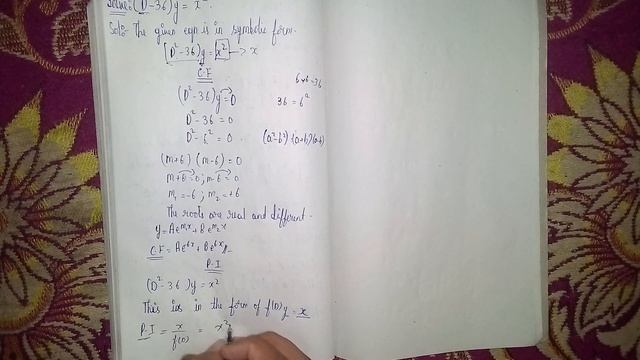 Solve: (D²-36)y = x².
Soln:- The given eqn is in symbolic form.
(D²-36)y = x² → x
C.F
6×6=36
(D²-36)y=0
36 = 6²
D²-36 = 0
D²-6² = 0 (a²-b²)=(a+b)(a-b)
(m+6) (m-6) = 0
m+6=0; m-6=0
m₁=-6; m₂=+6
The roots are real and different.
y=Ae^m₁x + Be^m₂x
C.F = Ae^-6x + Be^6x
P.I
(D²-36)y = x²
This is in the form of f(D)y = x
P.I = x/f(D) = x²